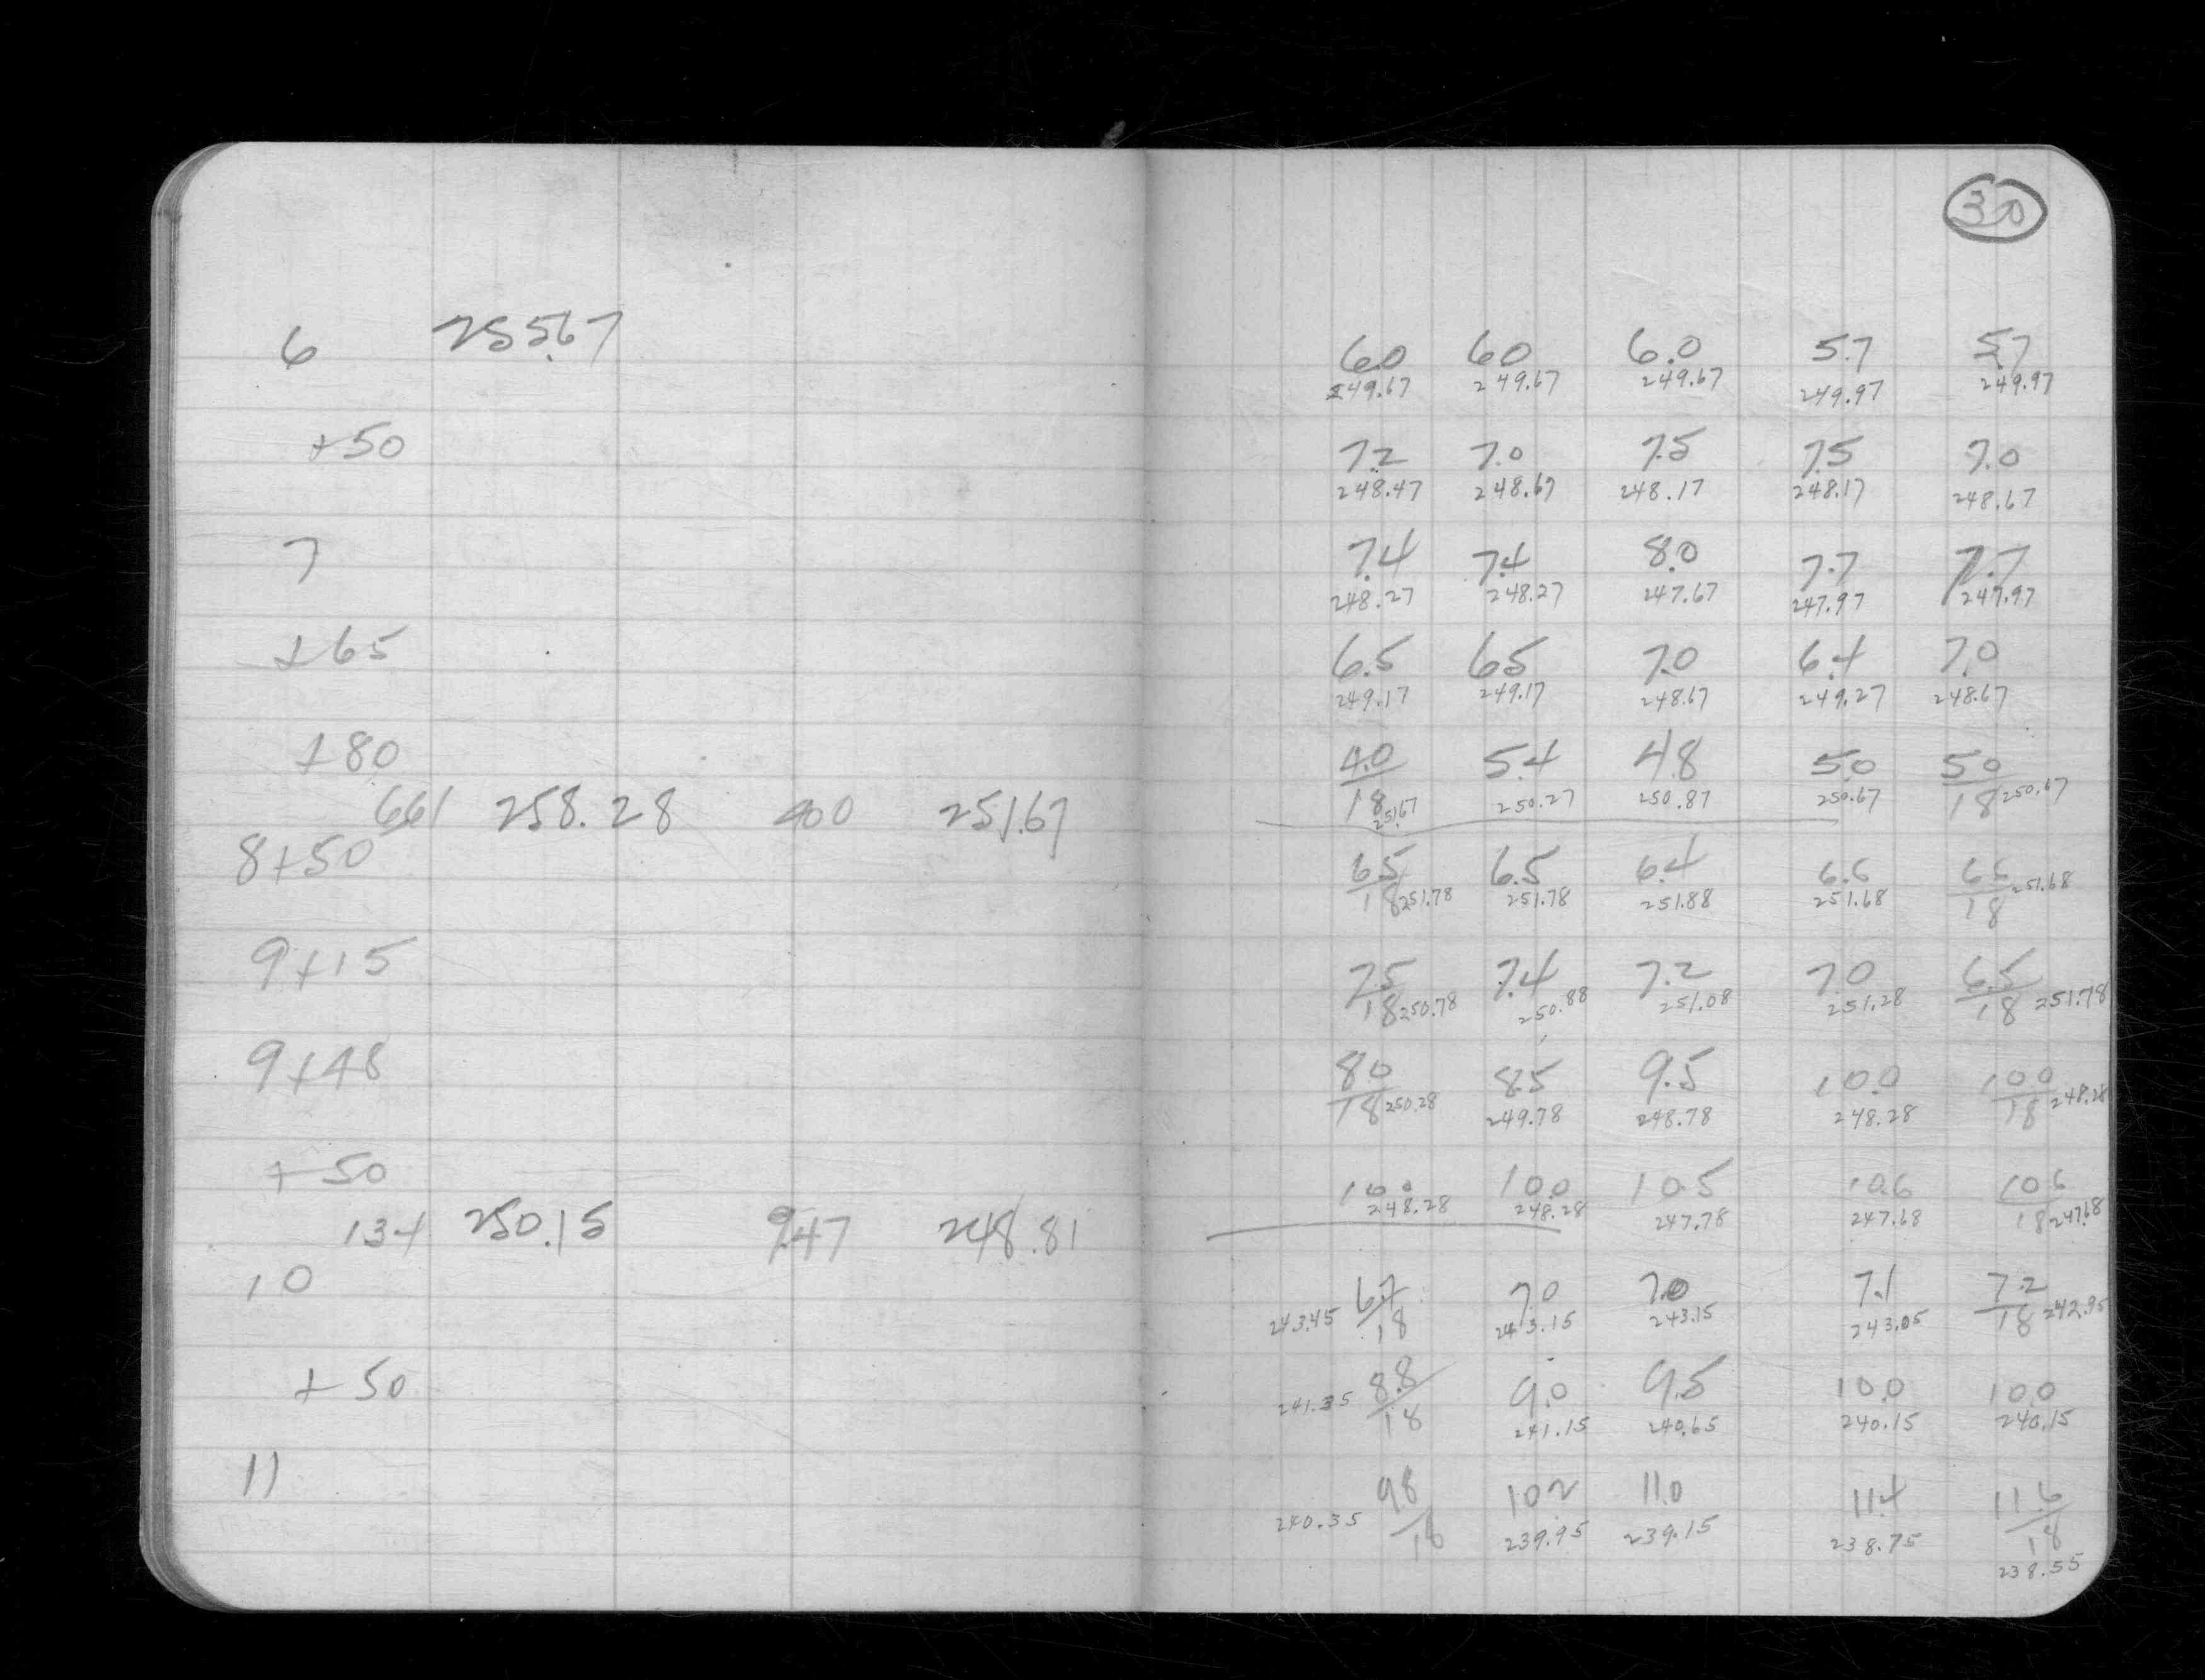 30
6 255.67 6.0 6.0 6.0 5.7 5.7
249.67 249.67 249.67 249.97 249.97
+50 7.2 7.0 7.5 7.5 7.0
248.47 248.67 248.17 248.17 248.67
7 7.4 7.4 8.0 7.7 7.7
248.27 248.27 247.67 247.97 247.97
+65 6.5 6.5 7.0 6.4 7.0
249.17 249.17 248.67 249.27 248.67
+80 4.0 5.4 4.8 5.0 5.0
661 258.28 400 251.67 18 251.67 250.27 250.87 250.67 18 250.67
8+50 6.5 6.5 6.4 6.6 6.6
18 251.78 251.78 251.88 251.68 18 251.68
9+15 7.5 7.4 7.2 7.0 6.5
18 250.78 250.88 251.08 251.28 18 251.78
9+48 8.0 8.5 9.5 10.0 10.0
18 250.28 249.78 248.78 248.28 18 248.28
+50 10.0 10.0 10.5 10.6 10.6
134 250.15 9.47 248.81 248.28 248.28 247.78 247.68 18 247.68
10 6.7 7.0 7.0 7.1 7.2
243.45 18 243.15 243.15 243.05 18 242.95
+50 8.8 9.0 9.5 10.0 10.0
241.35 18 241.15 240.65 240.15 240.15
11 9.8 10.2 11.0 11.4 11.6
240.35 18 239.95 239.15 238.75 18
238.55